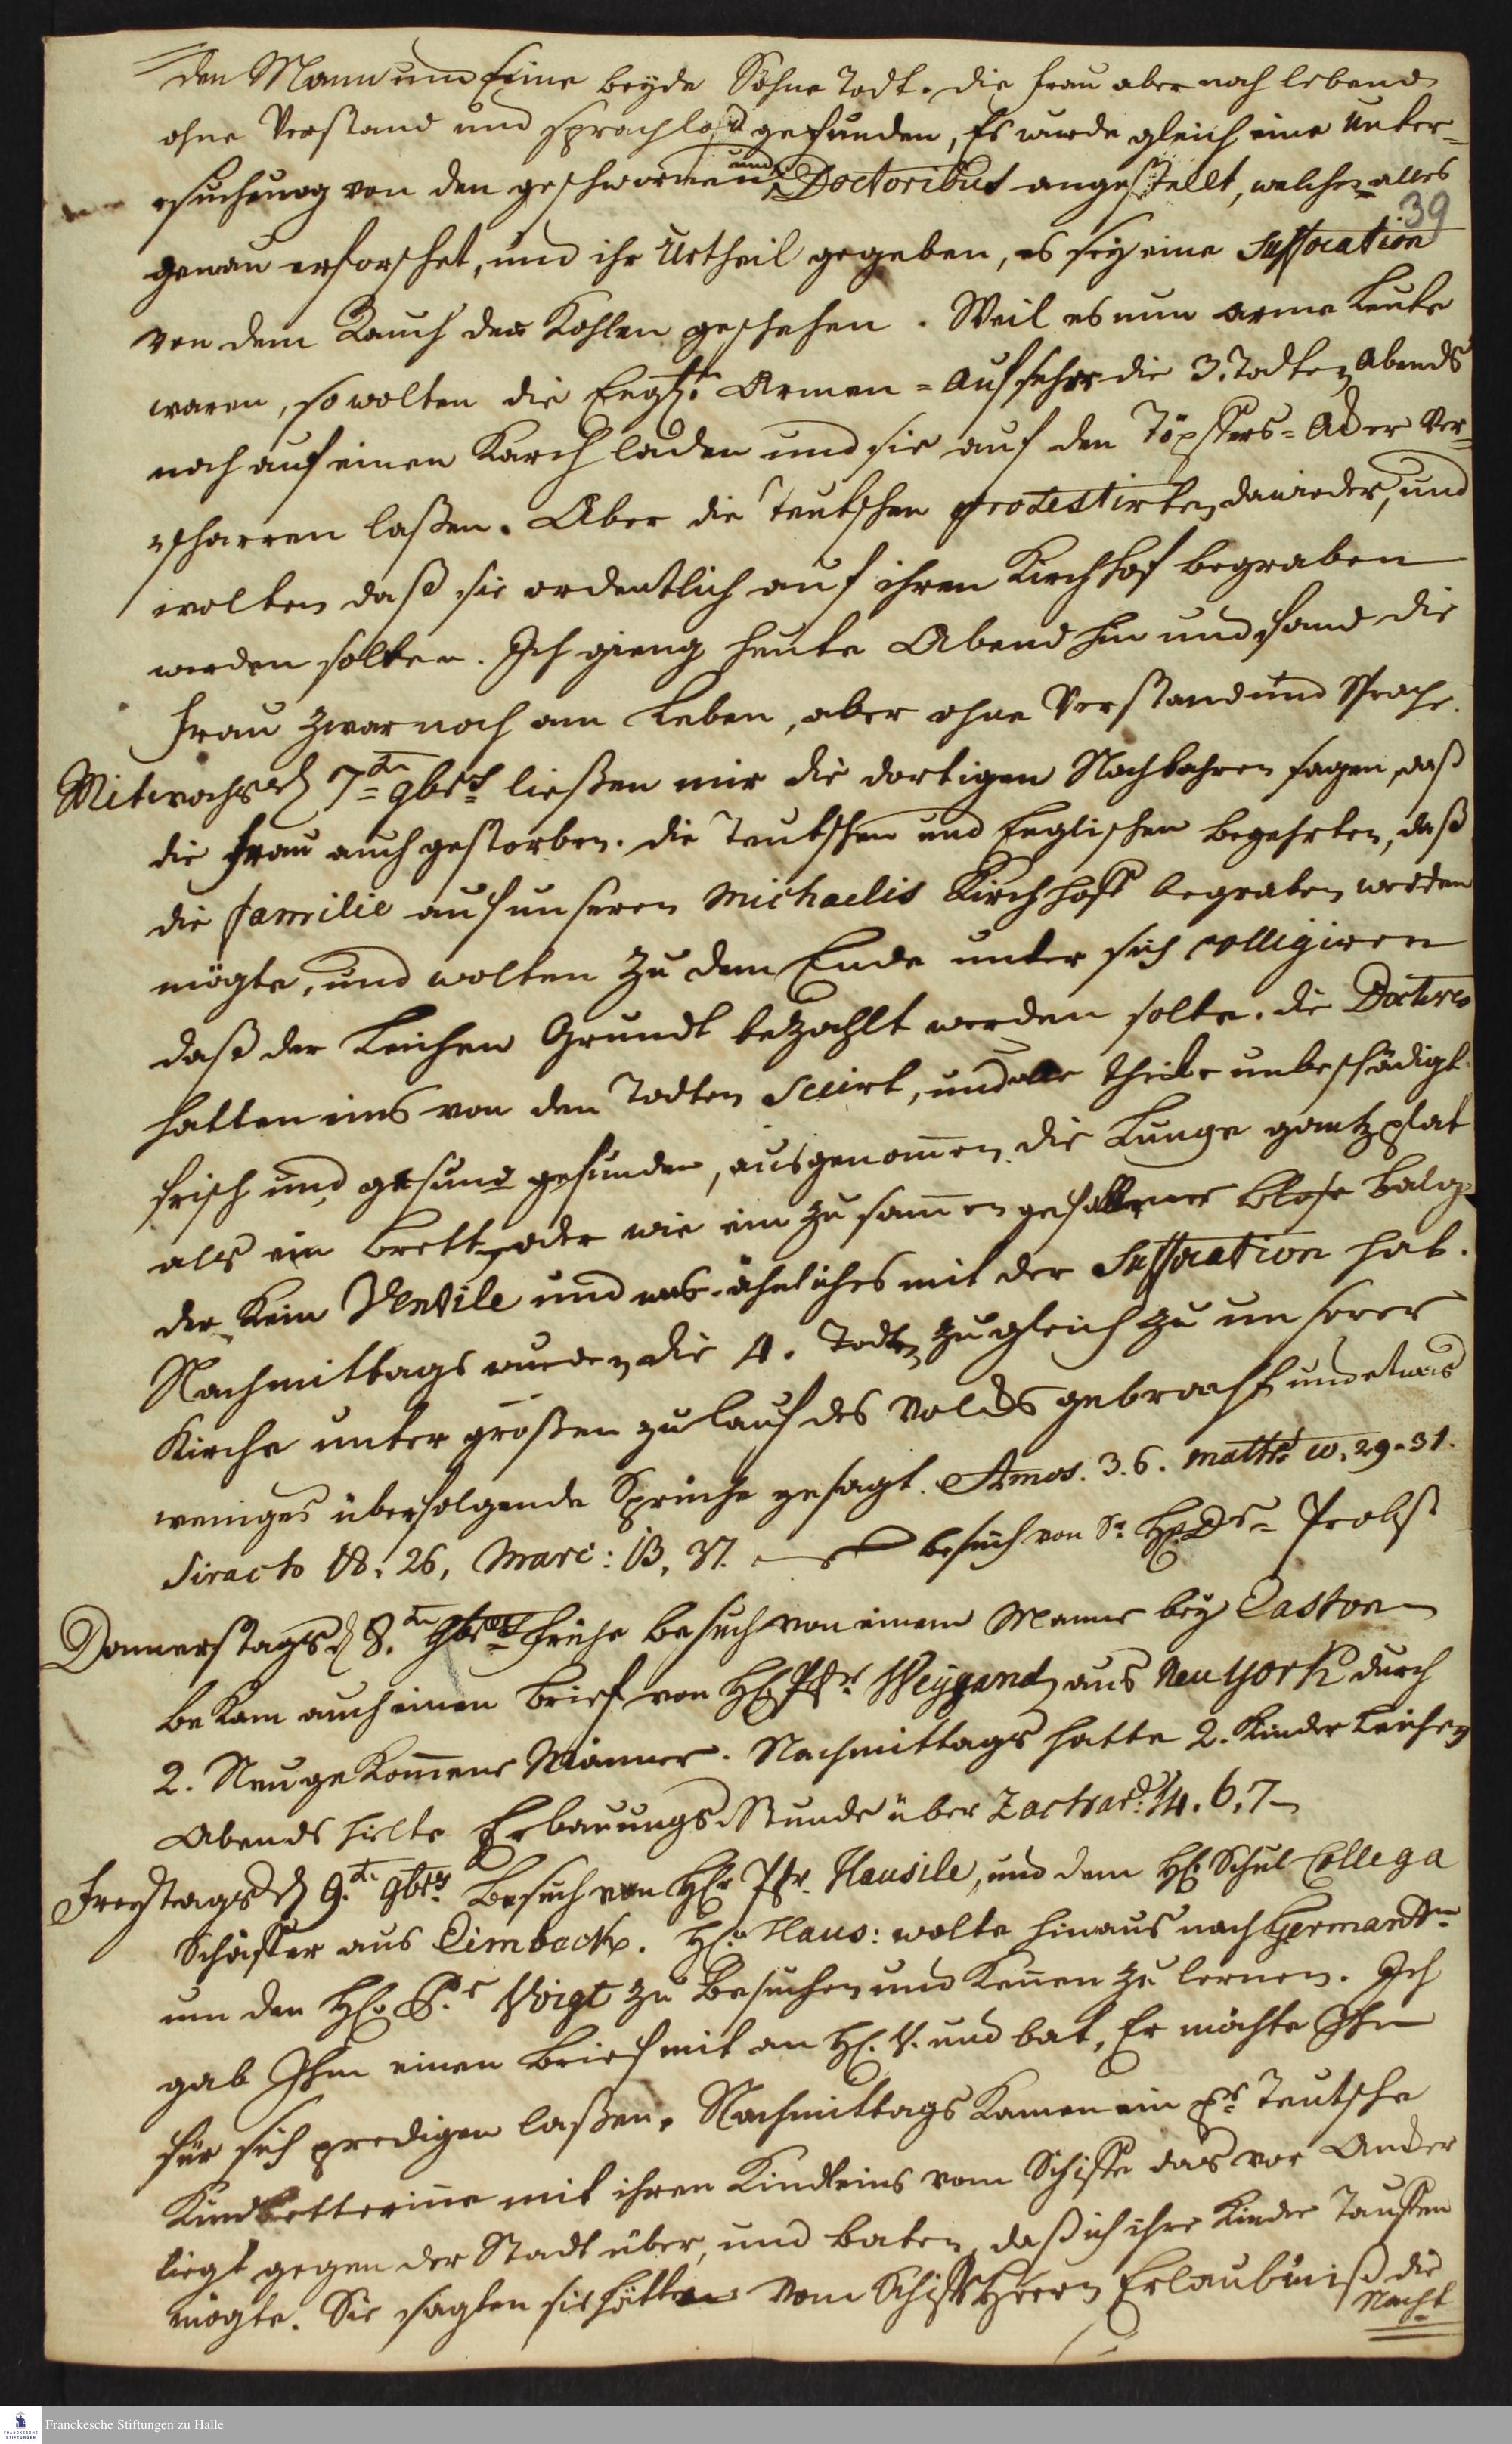 den Mann und seine beyde Söhne Todt. die Frau aber noch lebend
ohne Verstand und sprachlos gefunden, Es wurde gleich eine Unter-
suchung von den geschwornen und Doctoribus angestellt, welche alles
39
genau erforschet, und ihr Urtheil gegeben, es sey eine Suffocation
von dem Rauch der Kohlen geschehen. Weil es nun arme Leute
waren, so wolten die Engl. Armen-Aufseher die 3. Todten Abends
noch auf einen Karch laden und sie auf den Töpffers-Acker Ver-
scharren laßen. Aber die Teutschen protestirten dawieder, und
wolten daß sie ordentlich auf ihren Kirchhof begraben
werden solten. Ich gieng heute Abend hin und fand die
Frau zwar noch am Leben, aber ohne Verstand und Sprache.
Mitwochs d 7ten 9brs ließen mir die dortigen Nachbahren sagen, daß
die Frau auch gestorben. die Teutschen und Englischen begehrten, daß
die Familie auf unseren Michaelis Kirchhoff begraben werden
mögte, und wolten zu dem Ende unter sich colligiren
daß der Leichen Grundt bezahlt werden solte. die Doctores
hatten eins von den Todten Secirt, und alle theile unbeschädigt
frisch und gesund gefunden, ausgenomen die Lunge gantz plat
als ein Brett, oder wie ein zusamen gefallener Blase Balg
der kein Ventile und was ähnliches mit der Suffocation hat.
Nachmittags wurden die 4. Todten zugleich zu unserer
Kirche unter großen zulauf des Volcks gebracht und etwas
weniges über folgende Sprüche gesagt. Amos. 3.6. Matth. 10. 29-31.
Sirach 18. 26, Marc: 13, 37. besuch von Sr HE. Dr Probst
Donnerstags d 8.ten 9brs Frühe besuch von einem Manne bey Easton
bekam auch einen Brief von HE Pfr Weygand aus Neu York durch
2. Neugekomene Männer. Nachmittags hatte 2. Kinder Leichen
Abends hielte Erbauungs Stunde über Zachar: 14. 6.7
Freytags d 9.ten 9brs Besuch von HE Pfr. Hausile, und dem HE Schul Collega
Schäffer aus Limback. HE. Haus: wolte hinaus nach Germantn
um den HE. P.r Voigt zu Besuchen und kenen zu lernen. Ich
gab Ihm einen Brief mit an HE. V. und bat, Er möchte Ihn
für sich predigen laßen. Nachmittags kamen ein pr Teutsche
Kindbetterinne mit ihren Kindleins vom Schiffe das vor Ancker
liegt gegen der Stadt über, und baten, daß ich ihre Kinder Tauffen
mögte. Sie sagten sie hätten vom Schiffs Herrn Erlaubniß die
Nacht
Franckesche Stiftungen zu Halle